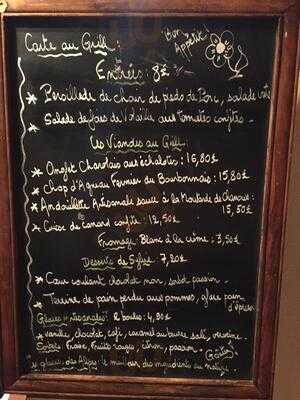 Carte au Grill :
Bon Appétit
Entrées : 8€
* Persillade de chair de pieds de Porc, salade verte
* Salade de foies de Volaille aux tomates confites -
Les Viandes au Grill :
* Onglet Charolais aux échalotes : 16,80£
* Chop d'Agneau Fermier du Bourbonnais : 15,80£
* Andouillette Artisanale sauce à la Moutarde de Charroux :
15,50£
* Cuisse de Canard confite : 12,50£
Fromage Blanc à la crème : 3,50£
Desserts de Sylvie : 7,20£
* Cœur coulant chocolat noir, sorbet passion -
* Terrine de pain perdu aux pommes, glace pain d'épices
Glaces Artisanales : 2 boules : 4,80£
* vanille, chocolat, café, caramel au beurre salé, verveine -
* Sorbet : Fraise, Fruits rouges, citron, passion -
* glaces des Alpes : le meilleur des ingrédients au naturel